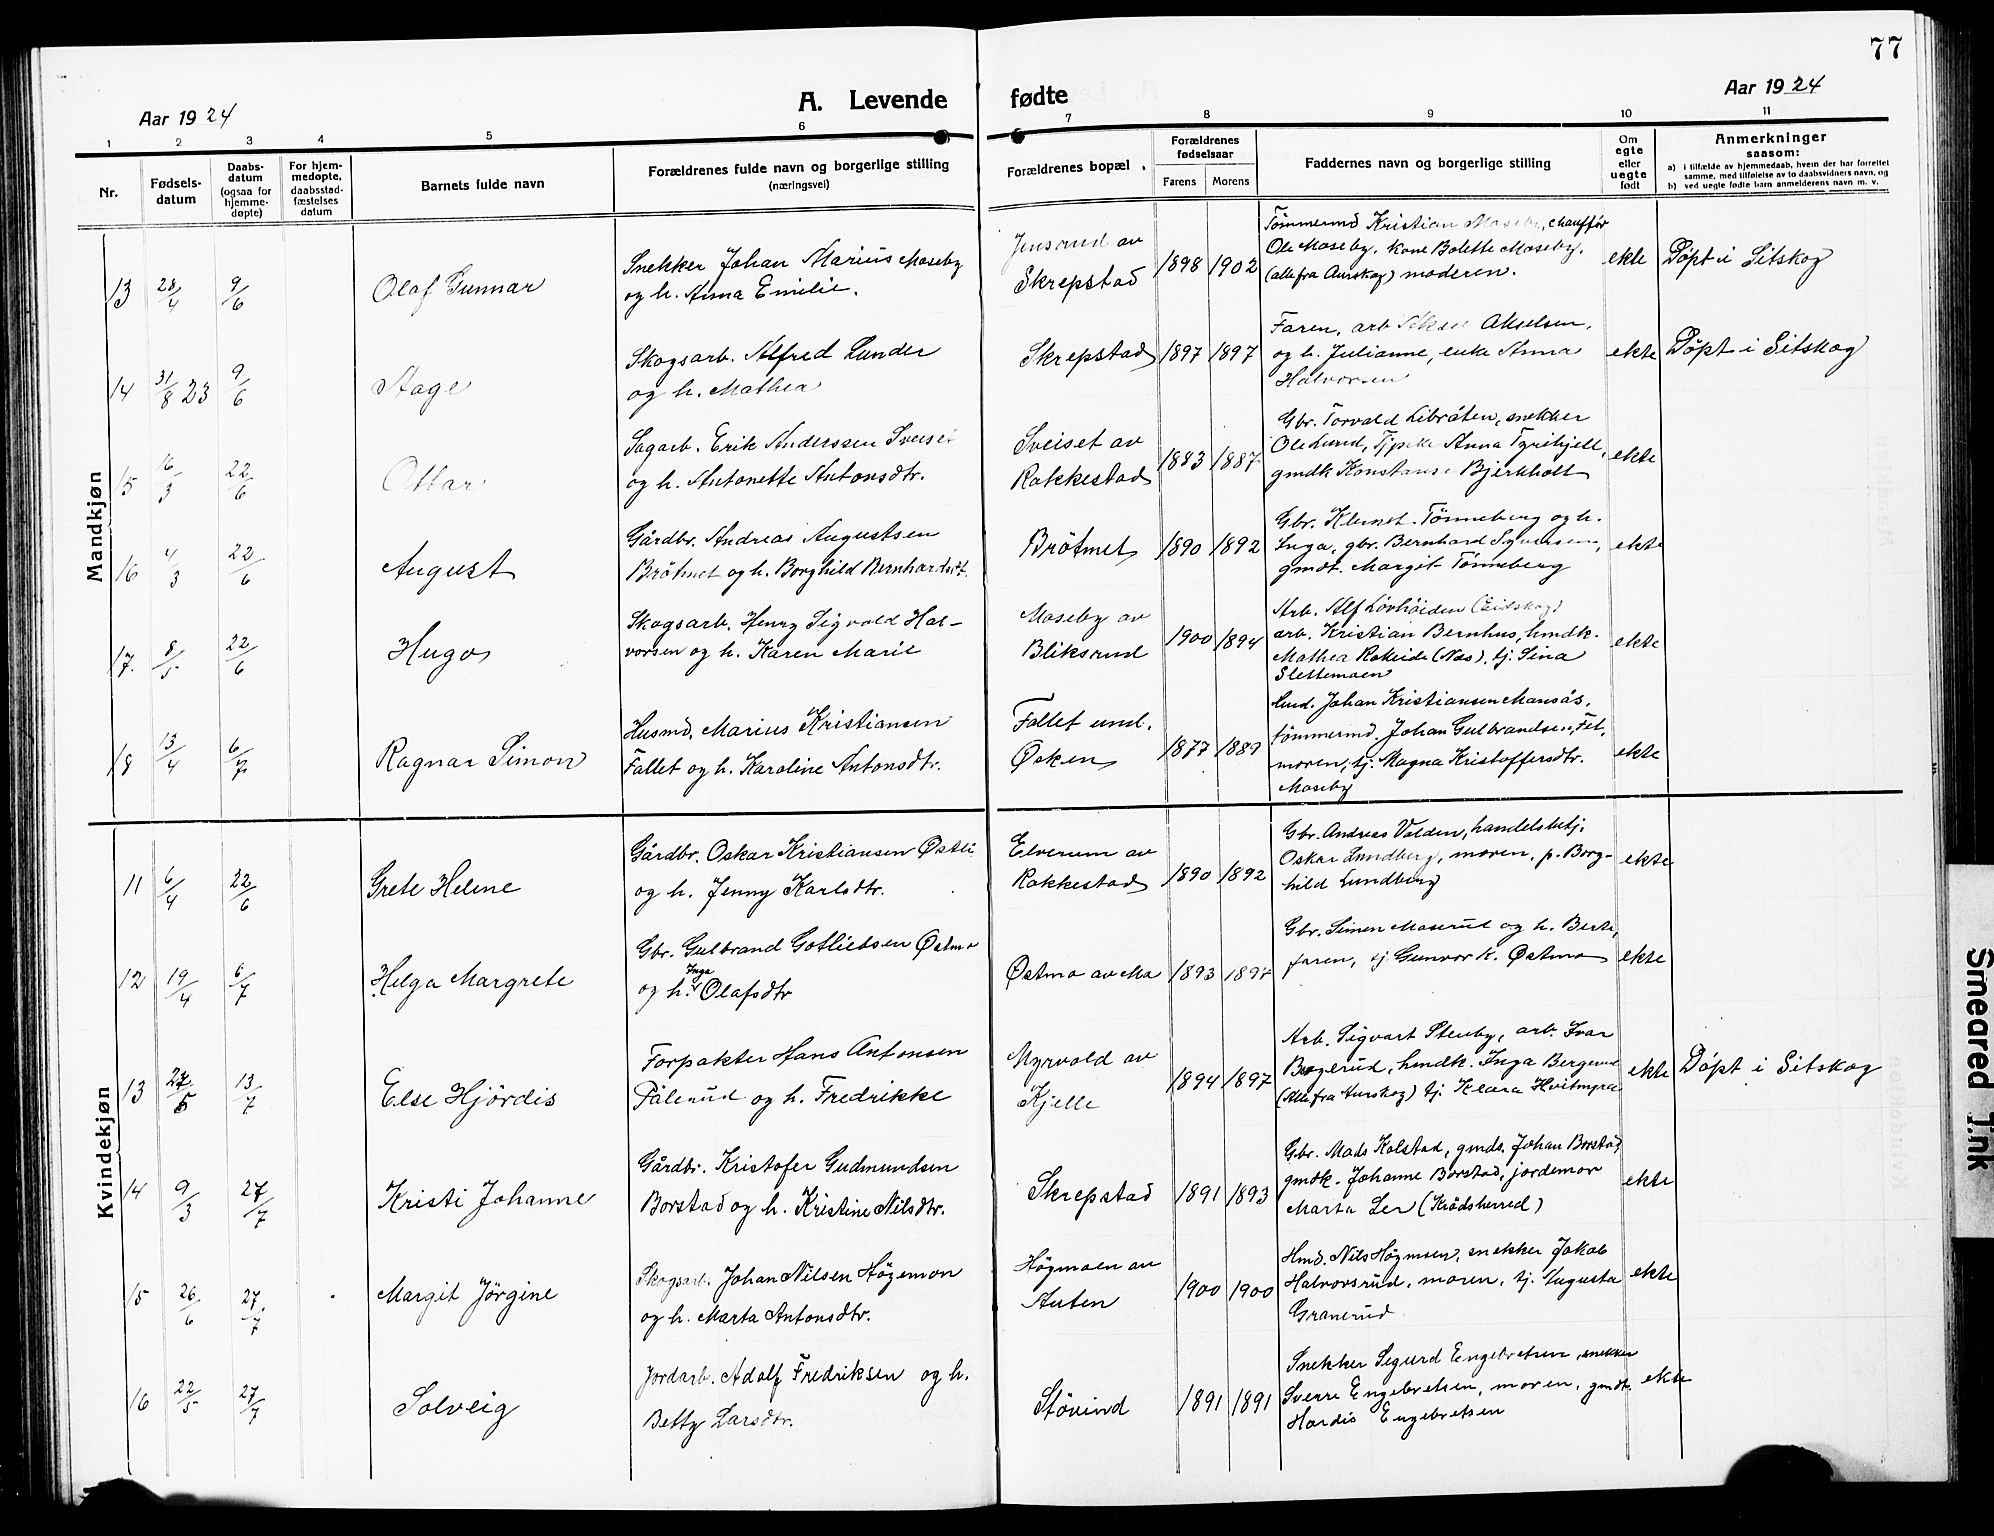 77
Aar 1924
A. Levende fødte
Aar 1924
1 2 3 4 5 6 7 8 9 10 11
Nr.
Fødsels-
datum
Daabs-
datum
(ogsaa for
hjemme-
døpte)
For hjem-
medøpte,
daabsstad-
fæstelses
datum
Barnets fulde navn
Forældrenes fulde navn og borgerlige stilling
(næringsvei)
Forældrenes bopæl
Forældrenes
fødselsaar
Farens Morens
Faddernes navn og borgerlige stilling
Om
egte
eller
uegte
født
Anmerkninger
saasom:
a) i tilfælde av hjemmedaab, hvem der har forrettet
samme, med tilføielse av to daabsvidners navn, og
b) ved uegte fødte barn anmelderens navn m. v.
Mandkjøn
13 28/4 9/6 Olaf Gunnar
Snekker Johan Marius Moseby
og h. Anna Emilie.
Jensrud av
Skrepstad
1898 1902
Tømmermd Kristian Moseby, chauffør
Ole Moseby, kone Bolette Moseby,
(alle fra Aurskog) moderen.
ekte Døpt i Sitskog
14 31/8 23 9/6 Aage
Skogsarb. Alfred Lunder
og h. Mathea
Skrepstad 1897 1897
Faren, arb. Akselsen,
og h. Julianne, enke Anna
Halvorsen
ekte Døpt i Sitskog
15 16/3 22/6 Ottar
Sagarb. Erik Anderssen Sveiset
og h. Antonette Antonsdtr.
Sveiset av
Rakkestad
1883 1887
Gbr. Torvald Libråten, snekker
Ole Lund, Anna Tyrihjell,
gmdk Konstanse Bjerkholt
ekte
16 4/3 22/6 August
Gårdbr. Andreas Augustsen
Bråtnet og h. Borghild Bernhardsdt.
Bråtnet 1890 1892
Gbr. Klemet Tønneberg og h.
Inga, gbr. Bernhard Syversen,
gmdt. Margit Tønneberg
ekte
17. 8/5 22/6 Hugo
Skogsarb. Henry Sigvald Hal-
vorsen og h. Karen Marie
Moseby av
Bliksrud
1900 1894
Arb. Alf Lövhöiden (Eidskog)
arb. Kristian Bernhus, hmdk.
Mathea Rakeide (Nes), tj. Sina
Slettemoen
ekte
18 13/4 6/7 Ragnar Simon
Husmd. Marius Kristiansen
Fallet og h. Karoline Antonsdtr.
Fallet und.
Øsken
1877 1889
Hmd. Johan Kristiansen Mansås,
tömmermd. Johan Gulbrandsen, Fet,
moren, tj. Magna Kristoffersdtr.
Moseby
ekte
Kvindekjøn
11 6/4 22/6 Grete Helene
Gårdbr. Oskar Kristiansen Østli
og h. Jenny Karlsdtr.
Elverum av
Rakkestad
1890 1892
Gbr. Andreas Volden, handelsbetj.
Oskar Lundberg, moren, p. Borg-
hild Lundberg
ekte
12 19/4 6/7 Helga Margrete
Gbr. Gulbrand Gotliebsen Østmo
og h. Inga Olafsdtr
Østmo av Mo 1893 1897
Gbr. Simen Moserud og h. Berte,
faren, tj Gunvor K. Østmo
ekte
13 27/5 13/7 Else Hjördis
Forpakter Hans Antonsen
Pålerud og h. Fredrikke
Myrvold av
Kjelle
1894 1897
Arb. Sigvart Stenby, arb. Ivar
Bøgerud, hmdk. Inga Bergerud
(Alle fra Aurskog) tj. Klara Hvitmyra
ekte Døpt i Sitskog
14 9/3 27/7 Kristi Johanne
Gårdbr. Kristofer Gudmundsen
Borstad og h. Kristine Nilsdtr.
Skrepstad 1891 1893
Gbr. Mads Kolstad, gmds. Johan Borstad,
gmdk. Johanne Borstad, jordemor
Marta Ler (Krådsherred)
ekte
15 26/6 27/7 Margit Jörgine
Skogsarb. Johan Nilsen Högemon
og h. Marta Antonsdtr.
Högmoen av
Auten
1900 1900
Hmd. Nils Högmsen, snekker Jakob
Halvorsrud, moren, tj. Augusta
Granerud
ekte
16 22/5 27/7 Solveig
Jordarb. Adolf Fredriksen og h.
Betty Larsdtr.
Stövind 1891 1891
Snekker Segurd Engebretsen, snekker
Sverre Engebretsen, moren, gmdt.
Hardis Engebretsen
ekte
Smeared Ink